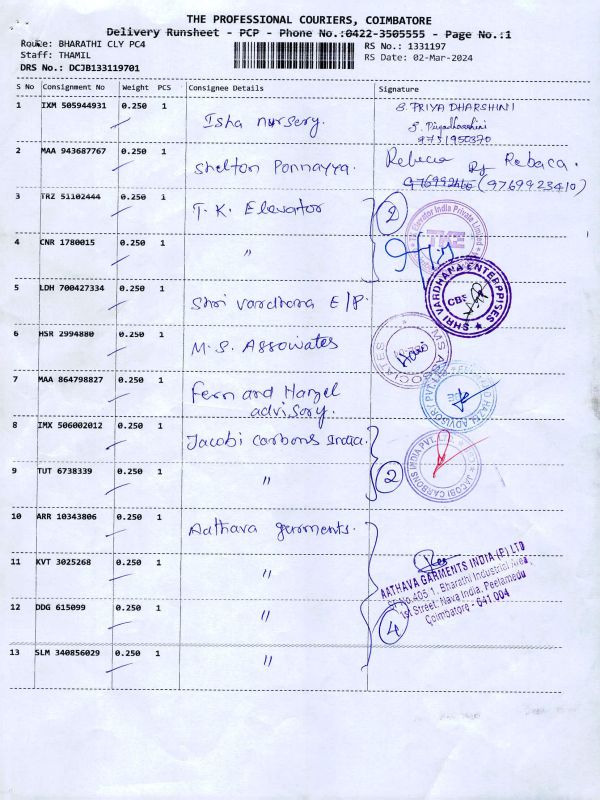 THE PROFESSIONAL COURIERS, COIMBATORE
Delivery Runsheet - PCP - Phone No.:0422-3505555 - Page No.:1
Route: BHARATHI CLY PC4
RS No.: 1331197
Staff: THAMIL
RS Date: 02-Mar-2024
DRS No.: DCJB133119701
S No Consignment No Weight PCS Consignee Details Signature
1 IXM 505944931 0.250 1 Isha nursery. S. PRIYA DHARSHINI
S. Piyadharshini
9751950370
2 MAA 943687767 0.250 1 Shelton Ponnayya. Rebecca Rebaca.
(9769923410)
3 TRZ 51102444 0.250 1 T. K. Elevator 2
TK Elevator India Private Limited
TKE
4 CNR 1780015 0.250 1 "
5 LDH 700427334 0.250 1 Shri Vardhana E/P.
SHRI VARDHANA ENTERPRISES
CBE
6 HSR 2994880 0.250 1 M. S. Assowates
MS ASSOCIATES
7 MAA 864798827 0.250 1 Fern and Hazel
advisory.
8 IMX 506002012 0.250 1 Jacobi Carbons India.
JACOBI CARBONS INDIA PVT. LTD
9 TUT 6738339 0.250 1 " 2
10 ARR 10343806 0.250 1 Aathava garments.
11 KVT 3025268 0.250 1 "
AATHAVA GARMENTS INDIA (P) LTD
SF No.405 1, Bharathi Industrial Area,
1st Street, Nava India, Peelamedu
Coimbatore - 641 004
12 DDG 615099 0.250 1 " 4
13 SLM 340856029 0.250 1 "